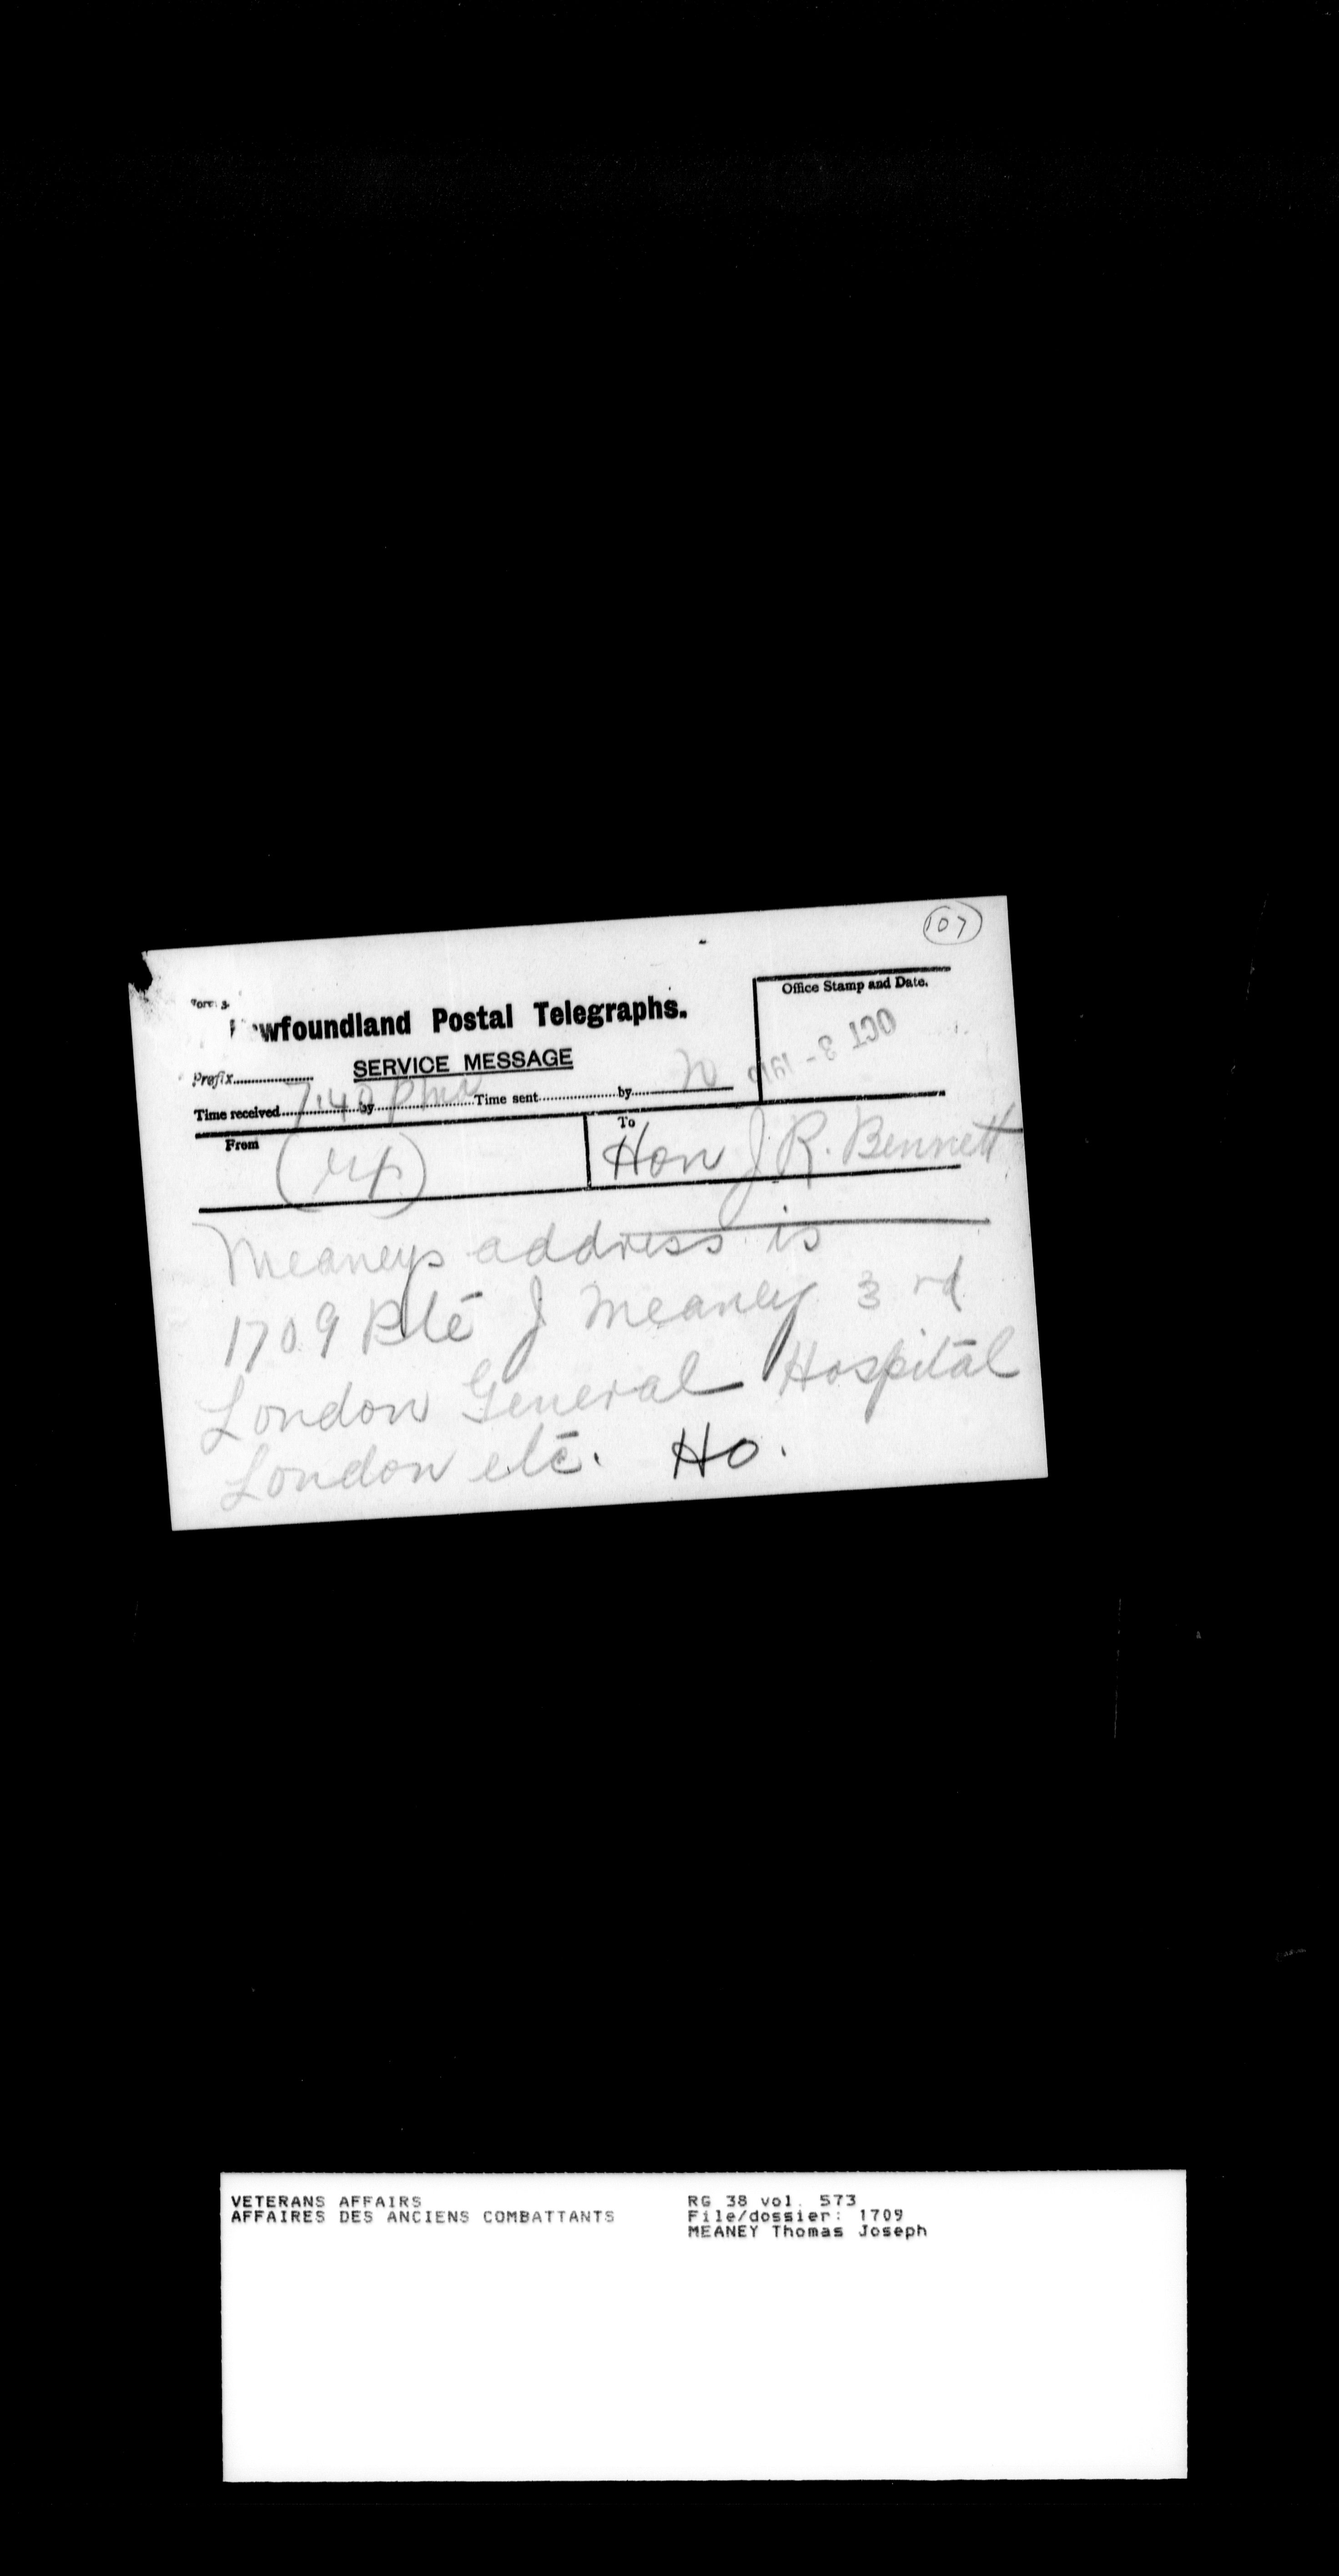 107
Form 3
wfoundland Postal Telegraphs.
Office Stamp and Date.
OCT 3 - 191
SERVICE MESSAGE
Prefix
Time received 7.40 by pm Time sent by
From
To
Hon J. R. Bennett
Meaneys address is
1709 Pte J Meaney 3rd
London General Hospital
London etc. HO.
VETERANS AFFAIRS
AFFAIRES DES ANCIENS COMBATTANTS
RG 38 vol. 573
File/dossier: 1709
MEANEY Thomas Joseph